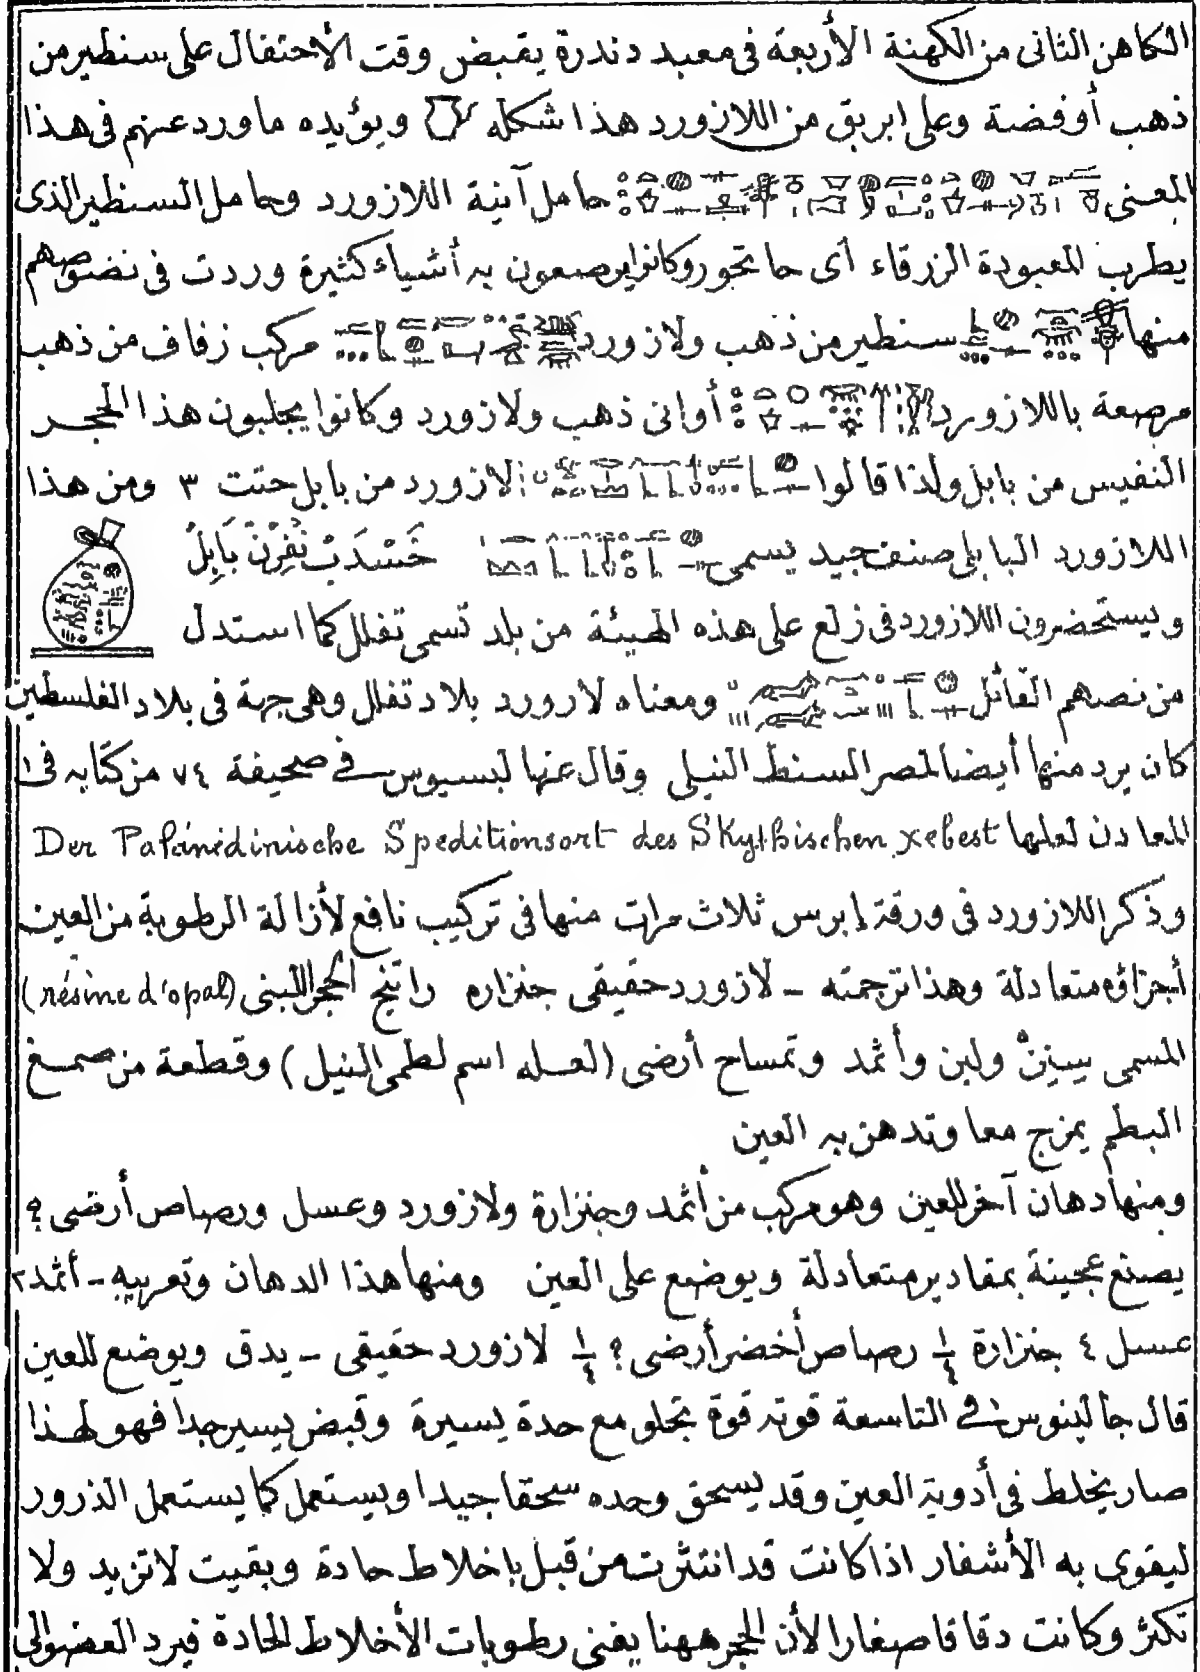 الكاهن الثانى من الكهنة الأربعة فى معبد دندرة يقبض وقت الأحتفال على سنطير من
ذهب أوفضة وعلى ابريق من اللازورد هذا شكله ويؤيده ماورد عنهم فى هذا
المعنى حامل آنية اللازورد وحامل السنطير الذى
يطرب المعبودة الزرقاء أى حاتحور وكانوا يرصعون به أشياء كثيرة وردت فى نصوصهم
منها سنطير من ذهب ولازورد مركب زفاف من ذهب
مرصعة باللازورد أوانى ذهب ولازورد وكانوا يجلبون هذا الحجر
النفيس من بابل ولذا قالوا لازورد من بابل حتت ٣ ومن هذا
اللازورد البابلى صنف جيد يسمى خَسْدَبْ نُفِرْنْ بَابِلْ
ويستحضرون اللازورد فى زلع على هذه الهيئة من بلد تسمى تفلل كما استدل
من نصهم القائل ومعناه لازورد بلاد تفلل وهى جهة فى بلاد الفلسطين
كان يرد منها أيضا لمصر السنط النيلى وقال عنها لبسيوس فى صحيفة ٧٤ من كتابه فى
المعادن لعلها Der Palänidinische Speditionsort des Skythischen xebest
وذكر اللازورد فى ورقة إبرس ثلاث مرات منها فى تركيب نافع لأزالة الرطوبة من العين
أجزاؤه متعادلة وهذا ترجمته - لازورد حقيقى جنزاره راتنج الحجر اللبنى (résine d'opal)
المسمى سينن ولبن وأثمد وتمساح أرضى (لعله اسم لطمى النيل) وقطعة من صمغ
البطم يمزج معا وتدهن به العين
ومنها دهان آخر للعين وهو مركب من أثمد وجنزارة ولازورد وعسل ورصاص أرضى ؟
يصنع عجينة بمقادير متعادلة ويوضع على العين ومنها هذا الدهان وتعريبه - أثمد ٢
عسل ٤ جنزارة ١/٤ رصاص أخضر أرضى ؟ ١/٤ لازورد حقيقى - يدق ويوضع للعين
قال جالينوس فى التاسعة قوته قوة تجلو مع حدة يسيرة وقبض يسير جدا فهو لهذا
صار يخلط فى أدوية العين وقد يسحق وحده سحقا جيدا ويستعمل كما يستعمل الذرور
ليقوى به الأشفار اذا كانت قد انتثرت من قبل باخلاط حادة وبقيت لاتزيد ولا
تكثر وكانت دقاقا صغارا لأن الحجر ههنا يفنى رطوبات الأخلاط الحادة فيرد العضو الى